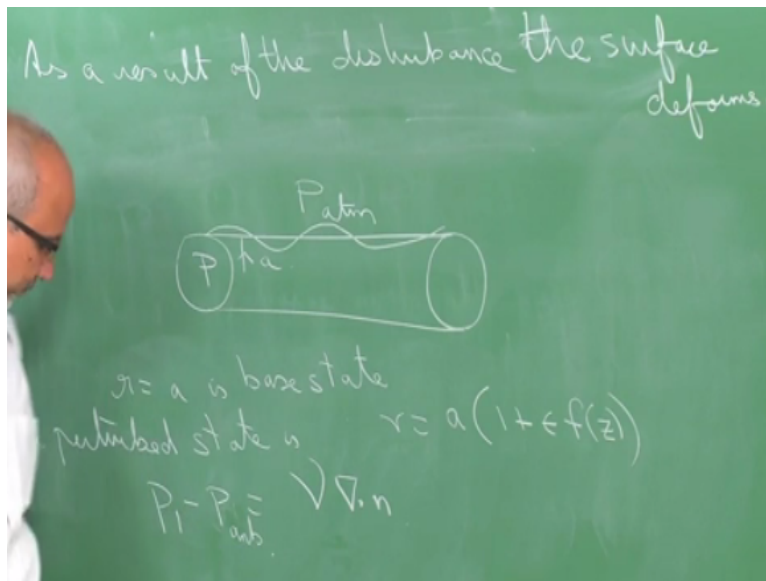 As a result of the disturbance the surface
deforms
Patm
P a
r = a is base state
perturbed state is r = a(1+εf(z))
P₁ - Pamb = γ ∇.n